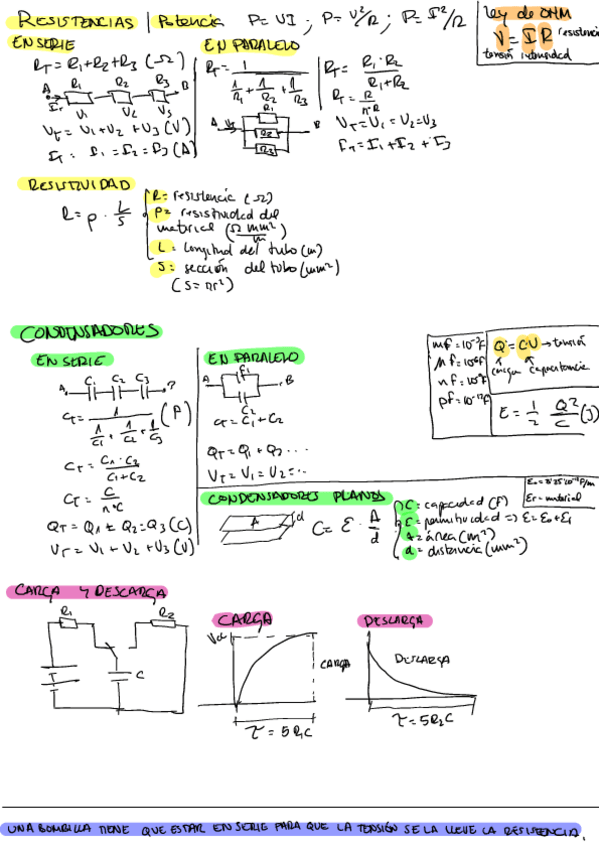 RESISTENCIAS | Potencia P= VI ; P= V²/R ; P= I²/R
ley de OHM
V = I R resistencia
tensión intensidad
EN SERIE
RT = R1 + R2 + R3 (Ω)
A R1 R2 R3 B
IT V1 V2 V3
VT = V1 + V2 + V3 (V)
IT = I1 = I2 = I3 (A)
EN PARALELO
RT = 1 / (1/R1 + 1/R2 + 1/R3)
RT = R1·R2 / R1+R2
RT = R / nºR
R1
A R2 B
R3
VT = V1 = V2 = V3
IT = I1 + I2 + I3
RESISTIVIDAD
R = ρ · L/S
R= resistencia (Ω)
ρ= resistividad del
material (Ω mm²/m)
L = longitud del tubo (m)
S = sección del tubo (mm²)
(S= πr²)
CONDENSADORES
EN SERIE
A C1 C2 C3
CT = 1 / (1/C1 + 1/C2 + 1/C3) (F)
CT = C1·C2 / C1+C2
CT = C / nºC
QT = Q1 = Q2 = Q3 (C)
VT = V1 + V2 + V3 (V)
EN PARALELO
A C1 B
C2
CT = C1 + C2
QT = Q1 + Q2 ...
VT = V1 = V2 = ...
mf = 10⁻³F
μf = 10⁻⁶F
nf = 10⁻⁹F
pf = 10⁻¹²F
Q = C·V → tensión
carga capacitancia
E = 1/2 Q²/C (J)
CONDENSADORES PLANOS
A d
C = ε · A/d
C = capacidad (F)
ε = permitividad => ε = ε0 + εr
A = área (m²)
d = distancia (mm²)
εr = material
CARGA Y DESCARGA
R1 R2
C
CARGA
Vcc
CARGA
τ = 5R1C
DESCARGA
DESCARGA
τ = 5R2C
UNA BOMBILLA TIENE QUE ESTAR EN SERIE PARA QUE LA TENSIÓN SE LA LLEVE LA RESISTENCIA.